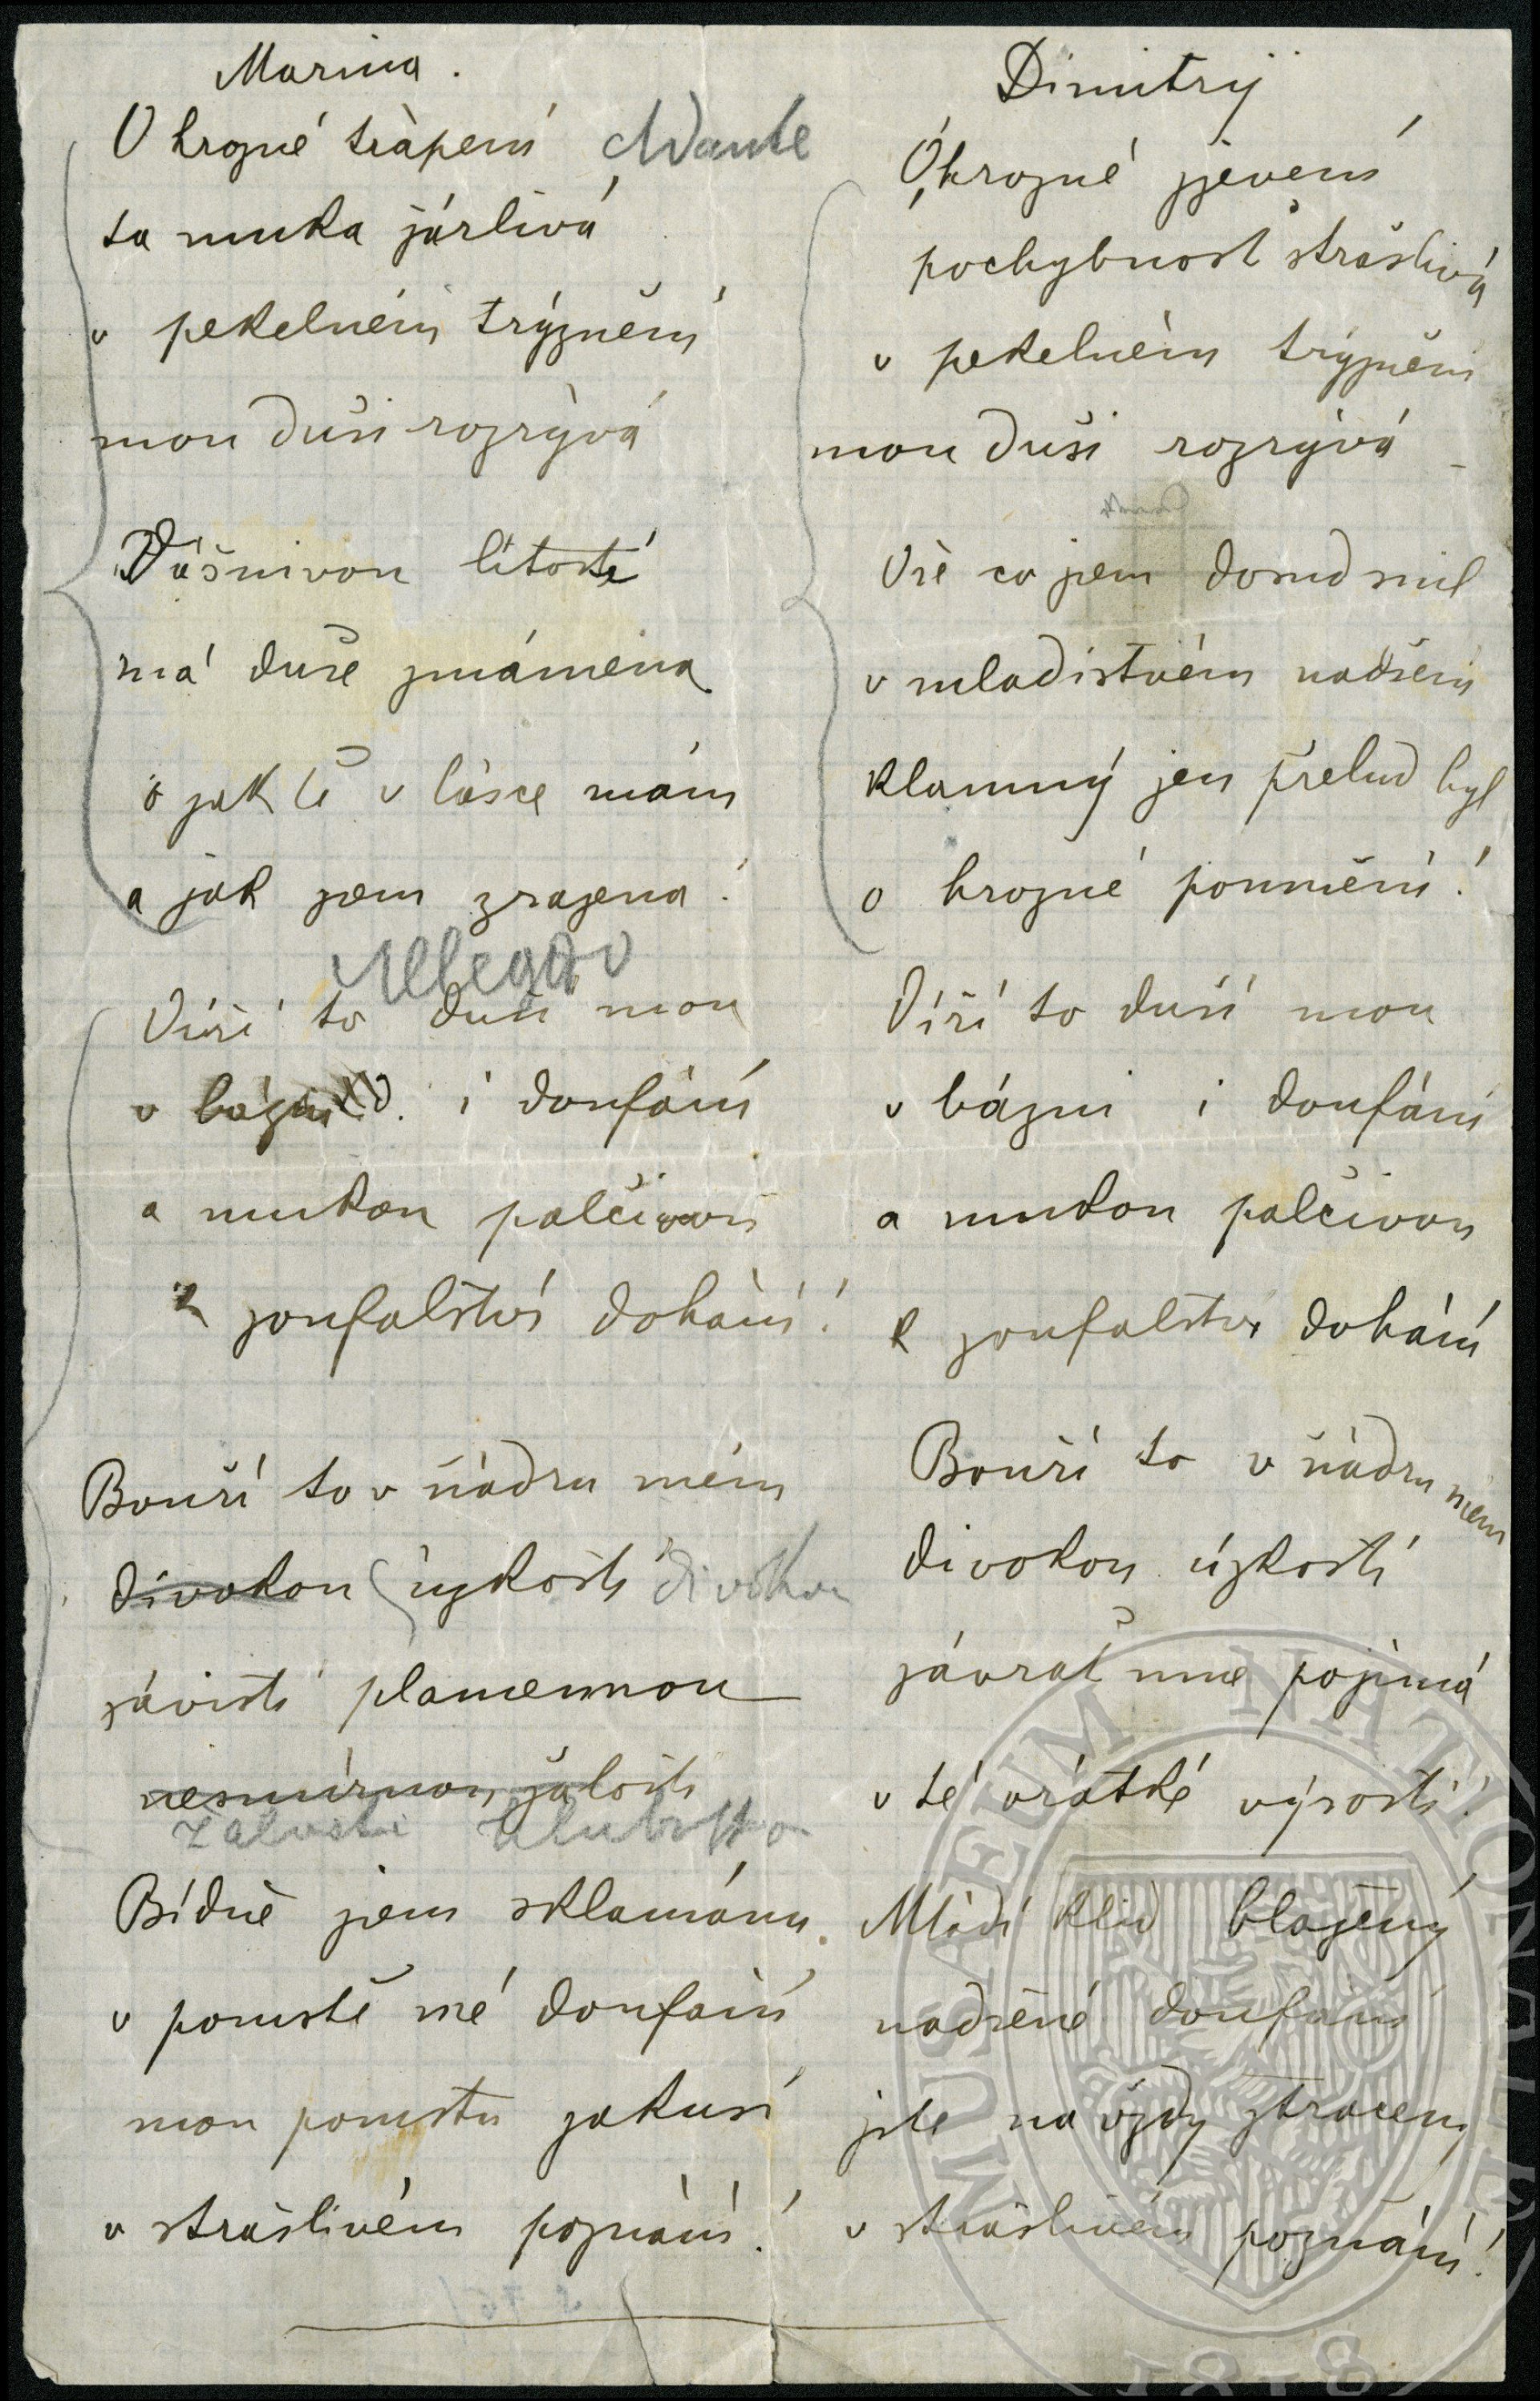 Marina.
O hrozné trápení Andante
ta muka žárlivá
v pekelném trýznění
mou duši rozrývá
Vášnivou lítostí
má duše zmámena
o jak tě v lásce mám
a jak jsem zrazena!
Allegro
Víří to duší mou
v bázni i doufání
a mukou palčivou
k zoufalství dohání!
Bouří to v ňádru mém
divokou úzkostí divokou
závistí plamennou
nesmírnou žalostí
žalostí hlubokou
Bídně jsem sklamána
v pomstě mé doufání
mou pomstu zakusí
v strašlivém poznání!
Dimitrij
Ó, hrozné zjevení
pochybnost strašlivá
v pekelném trýznění
mou duši rozrývá
Vše co jsem dosud snil
v mladistvém nadšení
klamný jen přelud byl
o hrozné pomnění!
Víří to duší mou
v bázni i doufání
a mukou palčivou
k zoufalství dohání
Bouří to v ňádru mém
divokou úzkostí
závrať mne pojímá
v té vrátké výsosti!
Mládí klid blažený
nadšené doufání
jste na vždy ztraceny
v strašlivém poznání!
MUSAEUM NATIONALE
1818